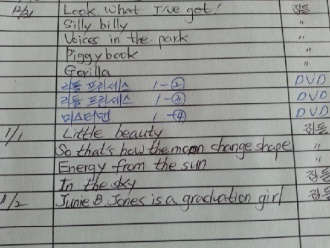 12/31 Look What I've got! 잠듦
Silly billy "
Voices in the park "
Piggybook "
Gorilla "
리틀 프린세스 1-② DVD
리틀 프린세스 1-③ DVD
미스터맨 1-④ DVD
1/1 Little beauty
So that's how the moon change shape "
Energy from the sun
In the sky
1/2 Junie B. Jones is a graduation girl